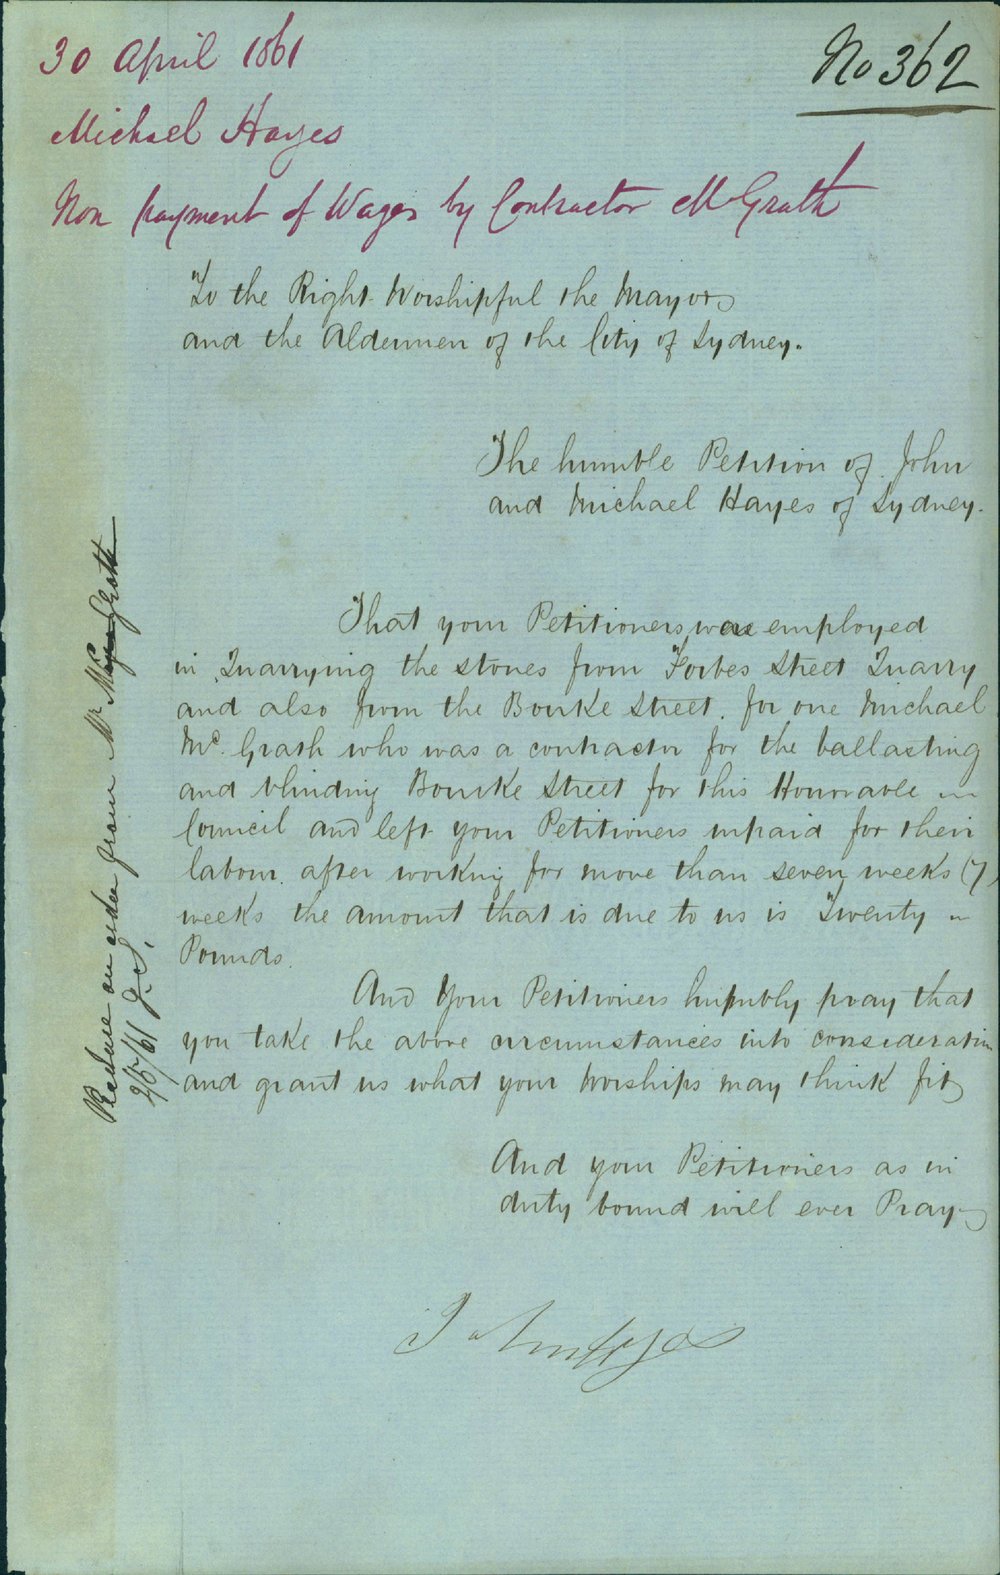 No 362
30 April 1861
Michael Hayes
Non payment of Wages by Contractor McGrath
To the Right Worshipful the Mayor
and the Aldermen of the City of Sydney.
The humble Petition of John
and Michael Hayes of Sydney.
That your Petitioners was employed
in Quarrying the stones from Forbes Street Quarry
and also from the Bourke Street. for one Michael
Mc. Grath who was a contractor for the ballasting
and blinding Bourke Street for this Honorable
Council and left your Petitioners unpaid for their
labour after working for more than seven weeks (7)
weeks the amount that is due to us is Twenty
Pounds.
And Your Petitioners humbly pray that
you take the above circumstances into consideration
and grant us what your Worships may think fit
And your Petitioners as in
duty bound will ever Pray
John Hayes
Produce an order from Mr Mc Grath